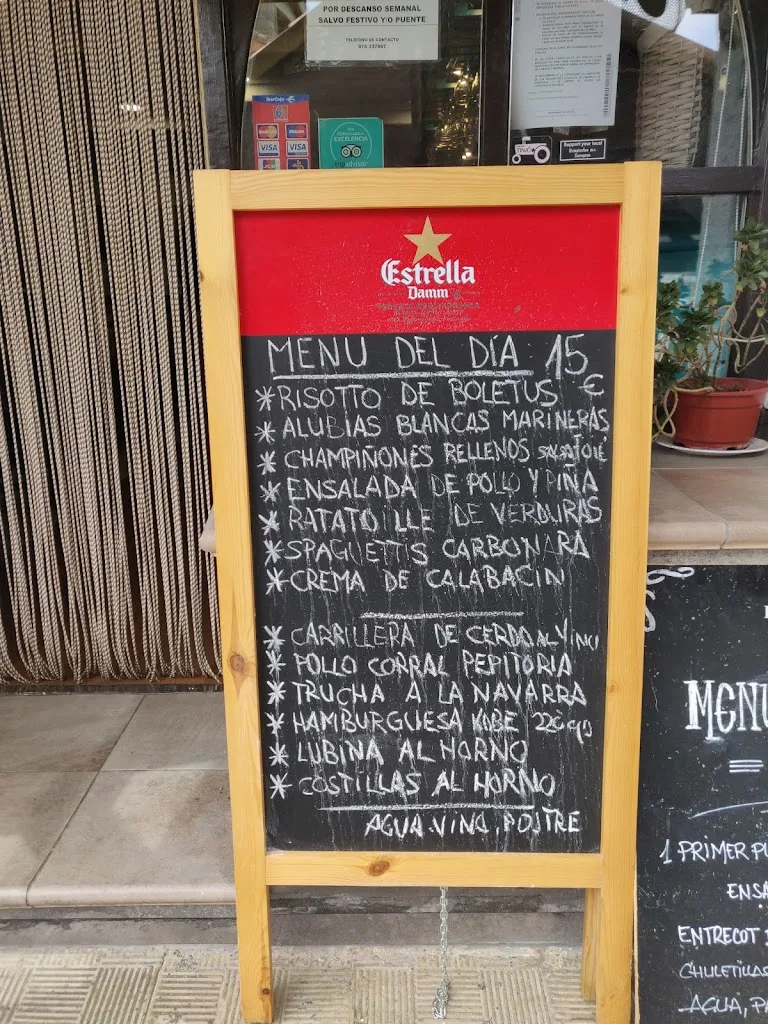 POR DESCANSO SEMANAL
SALVO FESTIVO Y/O PUENTE
TELÉFONO DE CONTACTO
iberCaja
VISA VISA
EXCELENCIA
tripadvisor
Support your local
Estrella
Damm
MENU DEL DÍA 15 €
* RISOTTO DE BOLETUS
* ALUBIAS BLANCAS MARINERAS
* CHAMPIÑONES RELLENOS
* ENSALADA DE POLLO Y PIÑA
* RATATOILLE DE VERDURAS
* SPAGUETTIS CARBONARA
* CREMA DE CALABACIN
* CARRILLERA DE CERDO AL VINO
* POLLO CORRAL PEPITORIA
* TRUCHA A LA NAVARRA
* HAMBURGUESA KOBE
* LUBINA AL HORNO
* COSTILLAS AL HORNO
AGUA. VINO. POSTRE
MENU
1 PRIMER
ENSA
ENTRECOT
CHULETILLAS
AGUA, PA